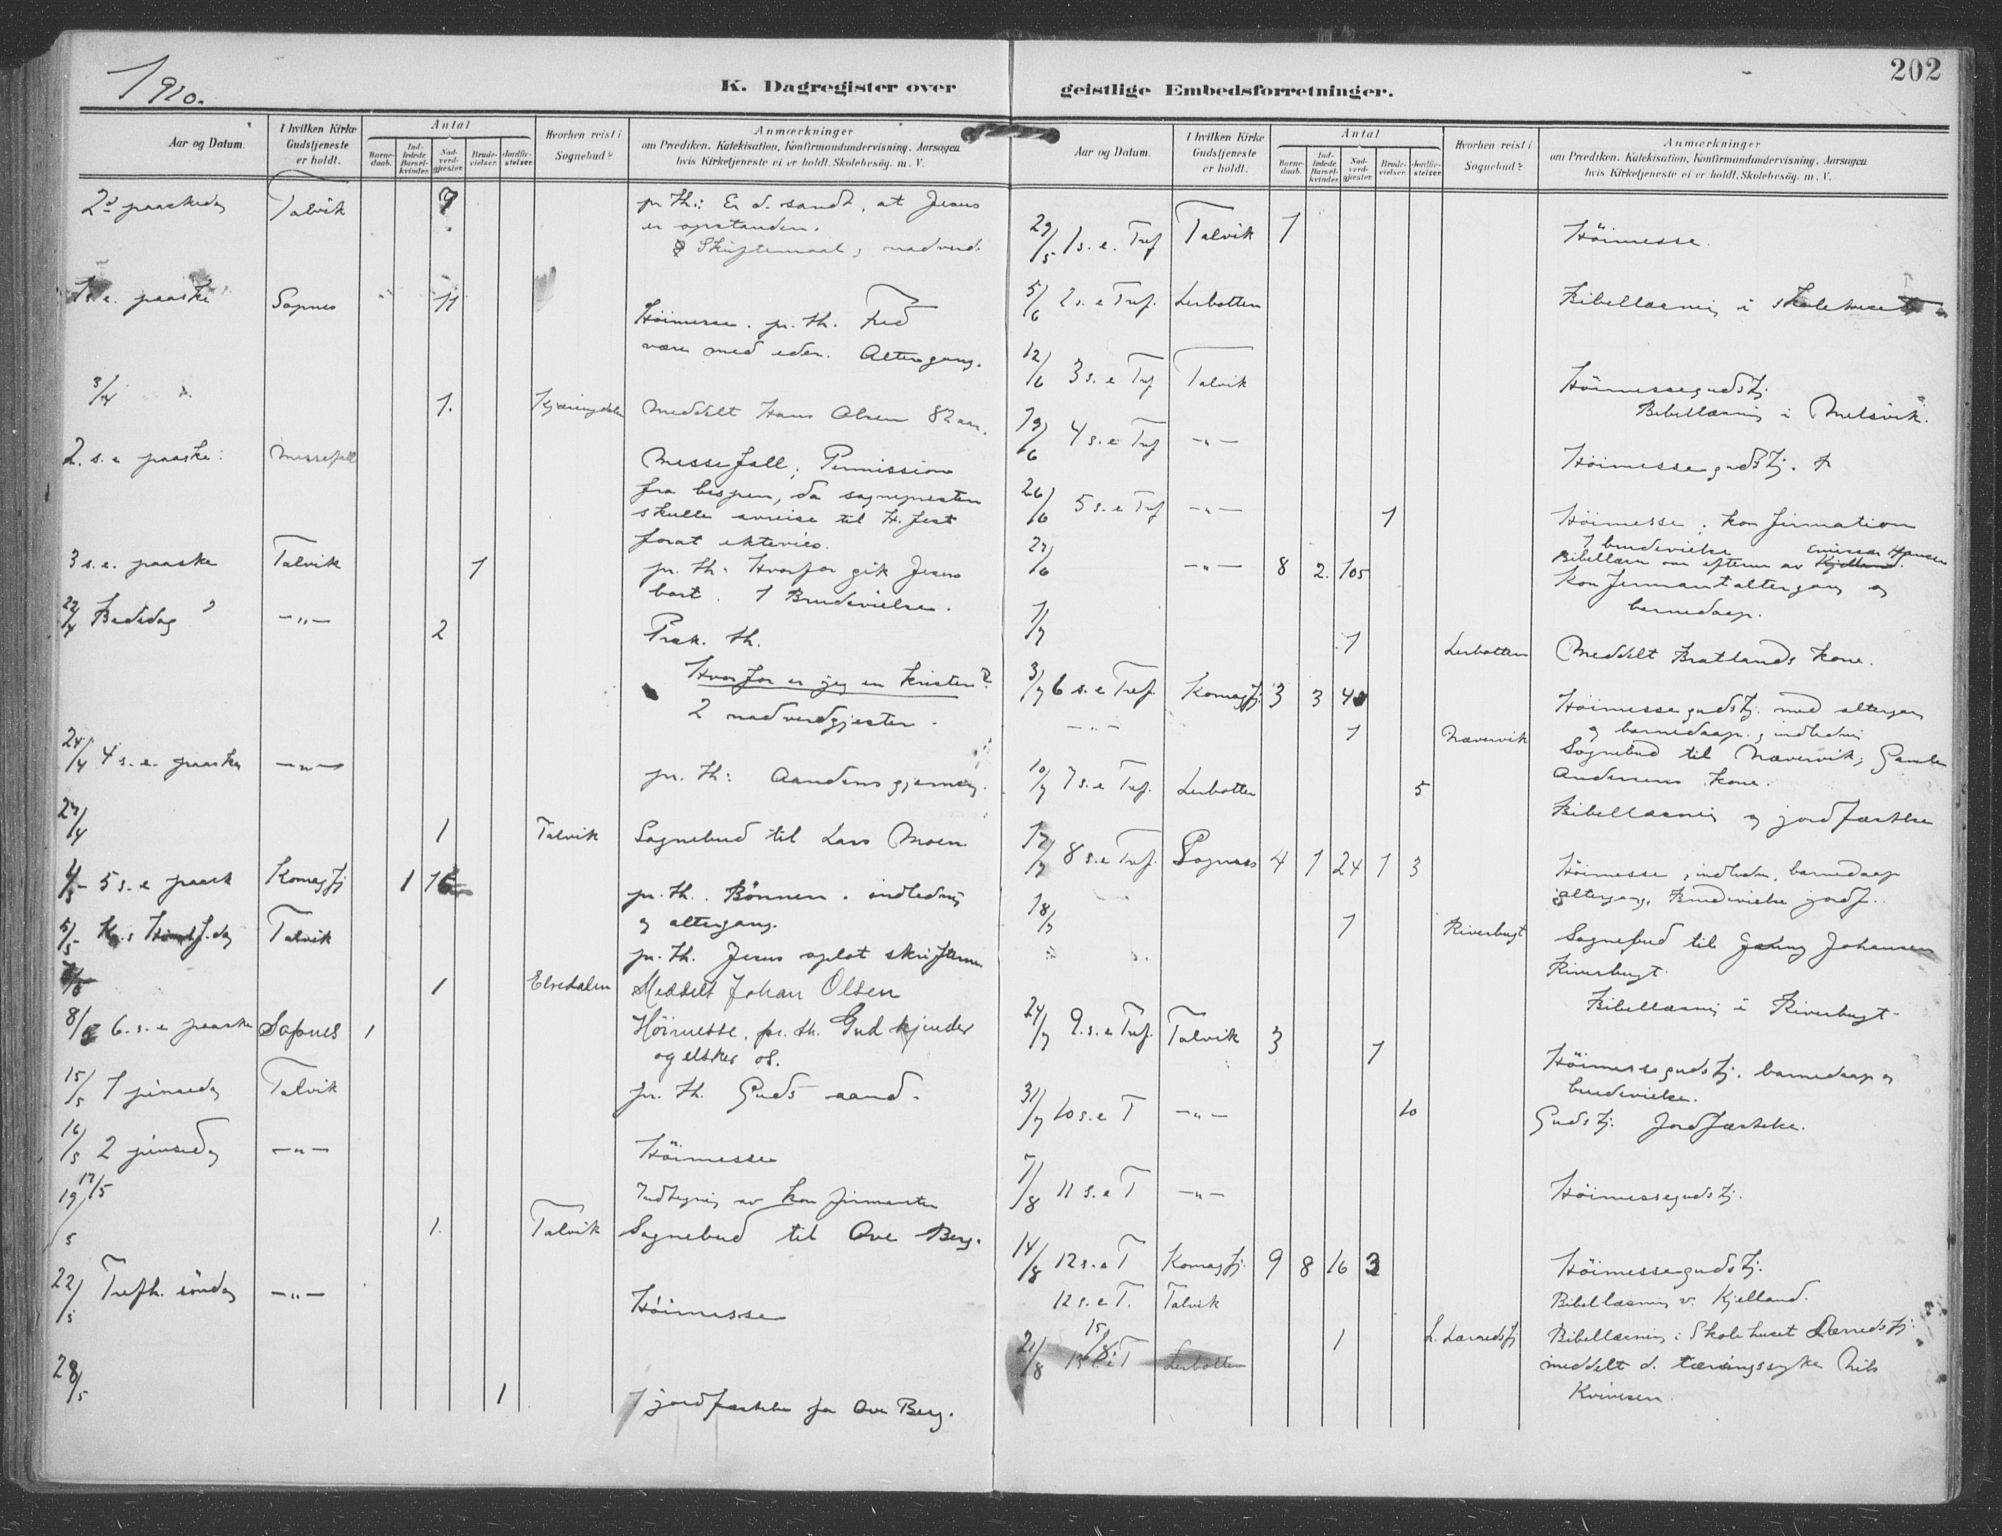 1910.
K. Dagregister over
Aar og Datum.
I hvilken Kirke
Gudstjeneste
er holdt.
Antal
Barne-
daab.
Ind-
ledede
Barsel-
kvinder.
Nad-
verd-
gjæster.
Brude-
vielser.
Jordfæ-
stelser.
Hvorhen reist i
Sognebud?
Anmærkninger
om Prædiken, Katekisation, Konfirmandundervisning, Aarsagen
hvis Kirketjeneste ei er holdt, Skolebesög. m. V.
2d paaskedag Talvik 9 pr. th.: Er d. sandt, at Jesus
er opstanden.
Skriftemaal, nadverd.
1 s. e. paaske Sopnes 11
Höimesse. pr. th. Fred
være med eder. Altergang.
3/4 1. Kjæringdalen Meddelt Hans Olsen 82 aar.
2. s. e paaske: Messefall
Messefall, Permission
fra bispen, da sognepresten
skulle avreise til H.fest
forat ektevies.
3 s. e. paaske Talvik 1 pr. th: Hvorfor gik Jesus
bort. 1 Brudevielse.
22/4 Bededag -"- 2 Præk. th.
Hvorfor er jeg en kristen?
2 nadverdgjester.
24/4 4 s. e. paaske -"-
pr. th: Aandens gjerning.
27/4 1 Talvik Sognebud til Lars Moen
1/5 5 s. e paask Komagfj 1 16
pr. th. Bønnen. indledning
og altergang.
5/5 Kr. Himlf.dag Talvik
pr. th. Jesus oplot skrifterne
1 Elvedalen Meddelt Johan Olsen
8/5 6. s. e paaske Sopnes 1 Höimesse, pr. th. Gud kjender
og elsker os.
15/5 1 pinsedag Talvik pr. th. Guds aand.
16/5 2 pinsedag -"- Höimesse
17/5
Indtegning av konfirmanter
19/5 1. Talvik Sognebud til Ove Berg.
22/5 Trefh. söndag -"-
Höimesse
28/5 1
1 jordfæstelse for Ove Berg.
202
geistlige Embedsforretninger.
Aar og Datum.
I hvilken Kirke
Gudstjeneste
er holdt.
Antal
Barne-
daab.
Ind-
ledede
Barsel-
kvinder.
Nad-
verd-
gjæster.
Brude-
vielser.
Jordfæ-
stelser.
Hvorhen reist i
Sognebud?
Anmærkninger
om Prædiken, Katekisation, Konfirmandundervisning, Aarsagen
hvis Kirketjeneste ei er holdt, Skolebesög. m. V.
29/5 1 s. e. Tref Talvik 1 Höimesse.
5/6 2 s. e Tref. Lerbotten Bibellæsning i skolehuset
12/6 3 s. e Tref Talvik
Höimessegudstj.
Bibellæsning i Melsvik.
19/6 4 s. e Tref -"-
Höimessegudstj.
26/6 5 s. e Tref -"- 1
Höimesse, konfirmation
1 brudevielse
Bibellæsn om efterm av Kjelland. emissær Hansen
27/6 -"- 8 2. 105
Konfirmantaltergang og
barnedaap.
1/7 1 Lerbotten Meddelt Bratlands kone.
3/7 6 s. e Tref. Komagfj. 3 3 40
Höimessegudstj. med altergang
og barnedaap, indledning
-"- 1 Nævervik Sognebud til Nævervik, Gamle
Andersens kone.
10/7 7 s. e Tref. Lerbotten 5
Bibellæsning og jordfæstelse
17/7 8 s. e Tref. Sopnes 4 1 24 1 3
Höimesse, indledn, barnedaap
altergang, Brudevielse jordf.
18/7 1 Riverbugt Sognebud til Johansen
Riverbugt.
Bibellæsning i Riverbugt.
24/7 9. s. e Tref. Talvik 3 1
Höimessegudstj. barnedaap og
brudevielse.
31/7 10 s. e T -"- 10 Gudstj. Jordfæstelse.
7/8 11 s. e T -"- Höimessegudstj.
14/8 12 s. e T Komagfj. 9 8 16 3 Höimessegudstj.
12 s. e T. Talvik Bibellæsning v. Kjelland.
15/8 1 L. Lærredsfj Bibellæsning i Skolehuset Lærredsfj.
meddelt d. tæringssyke Nils
Kvivesen.
21/8 13 s. e T Lerbotten